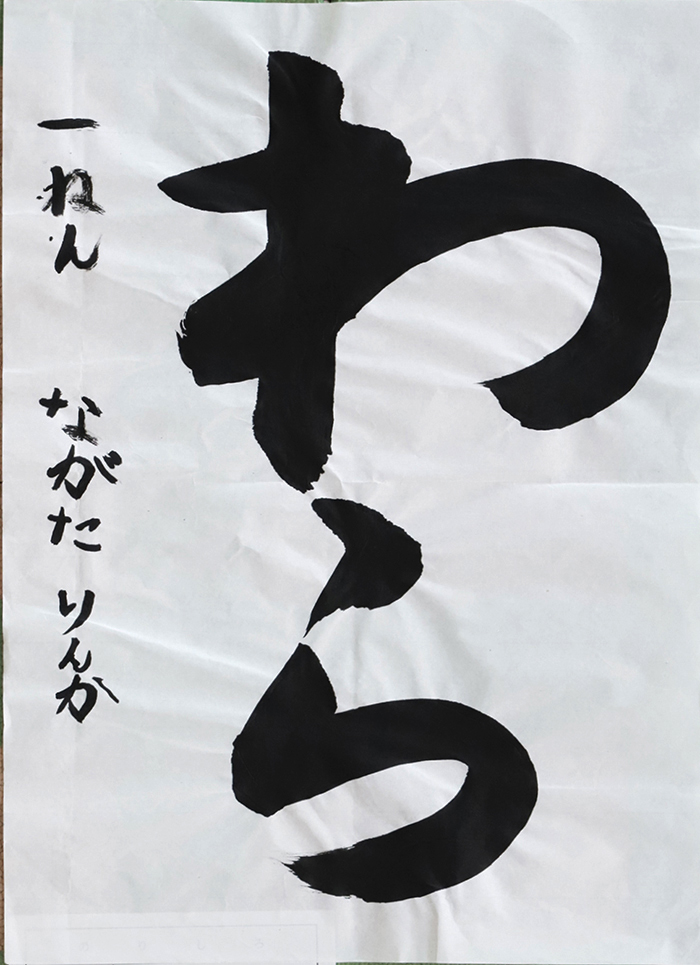 わら
一ねん ながた りんか